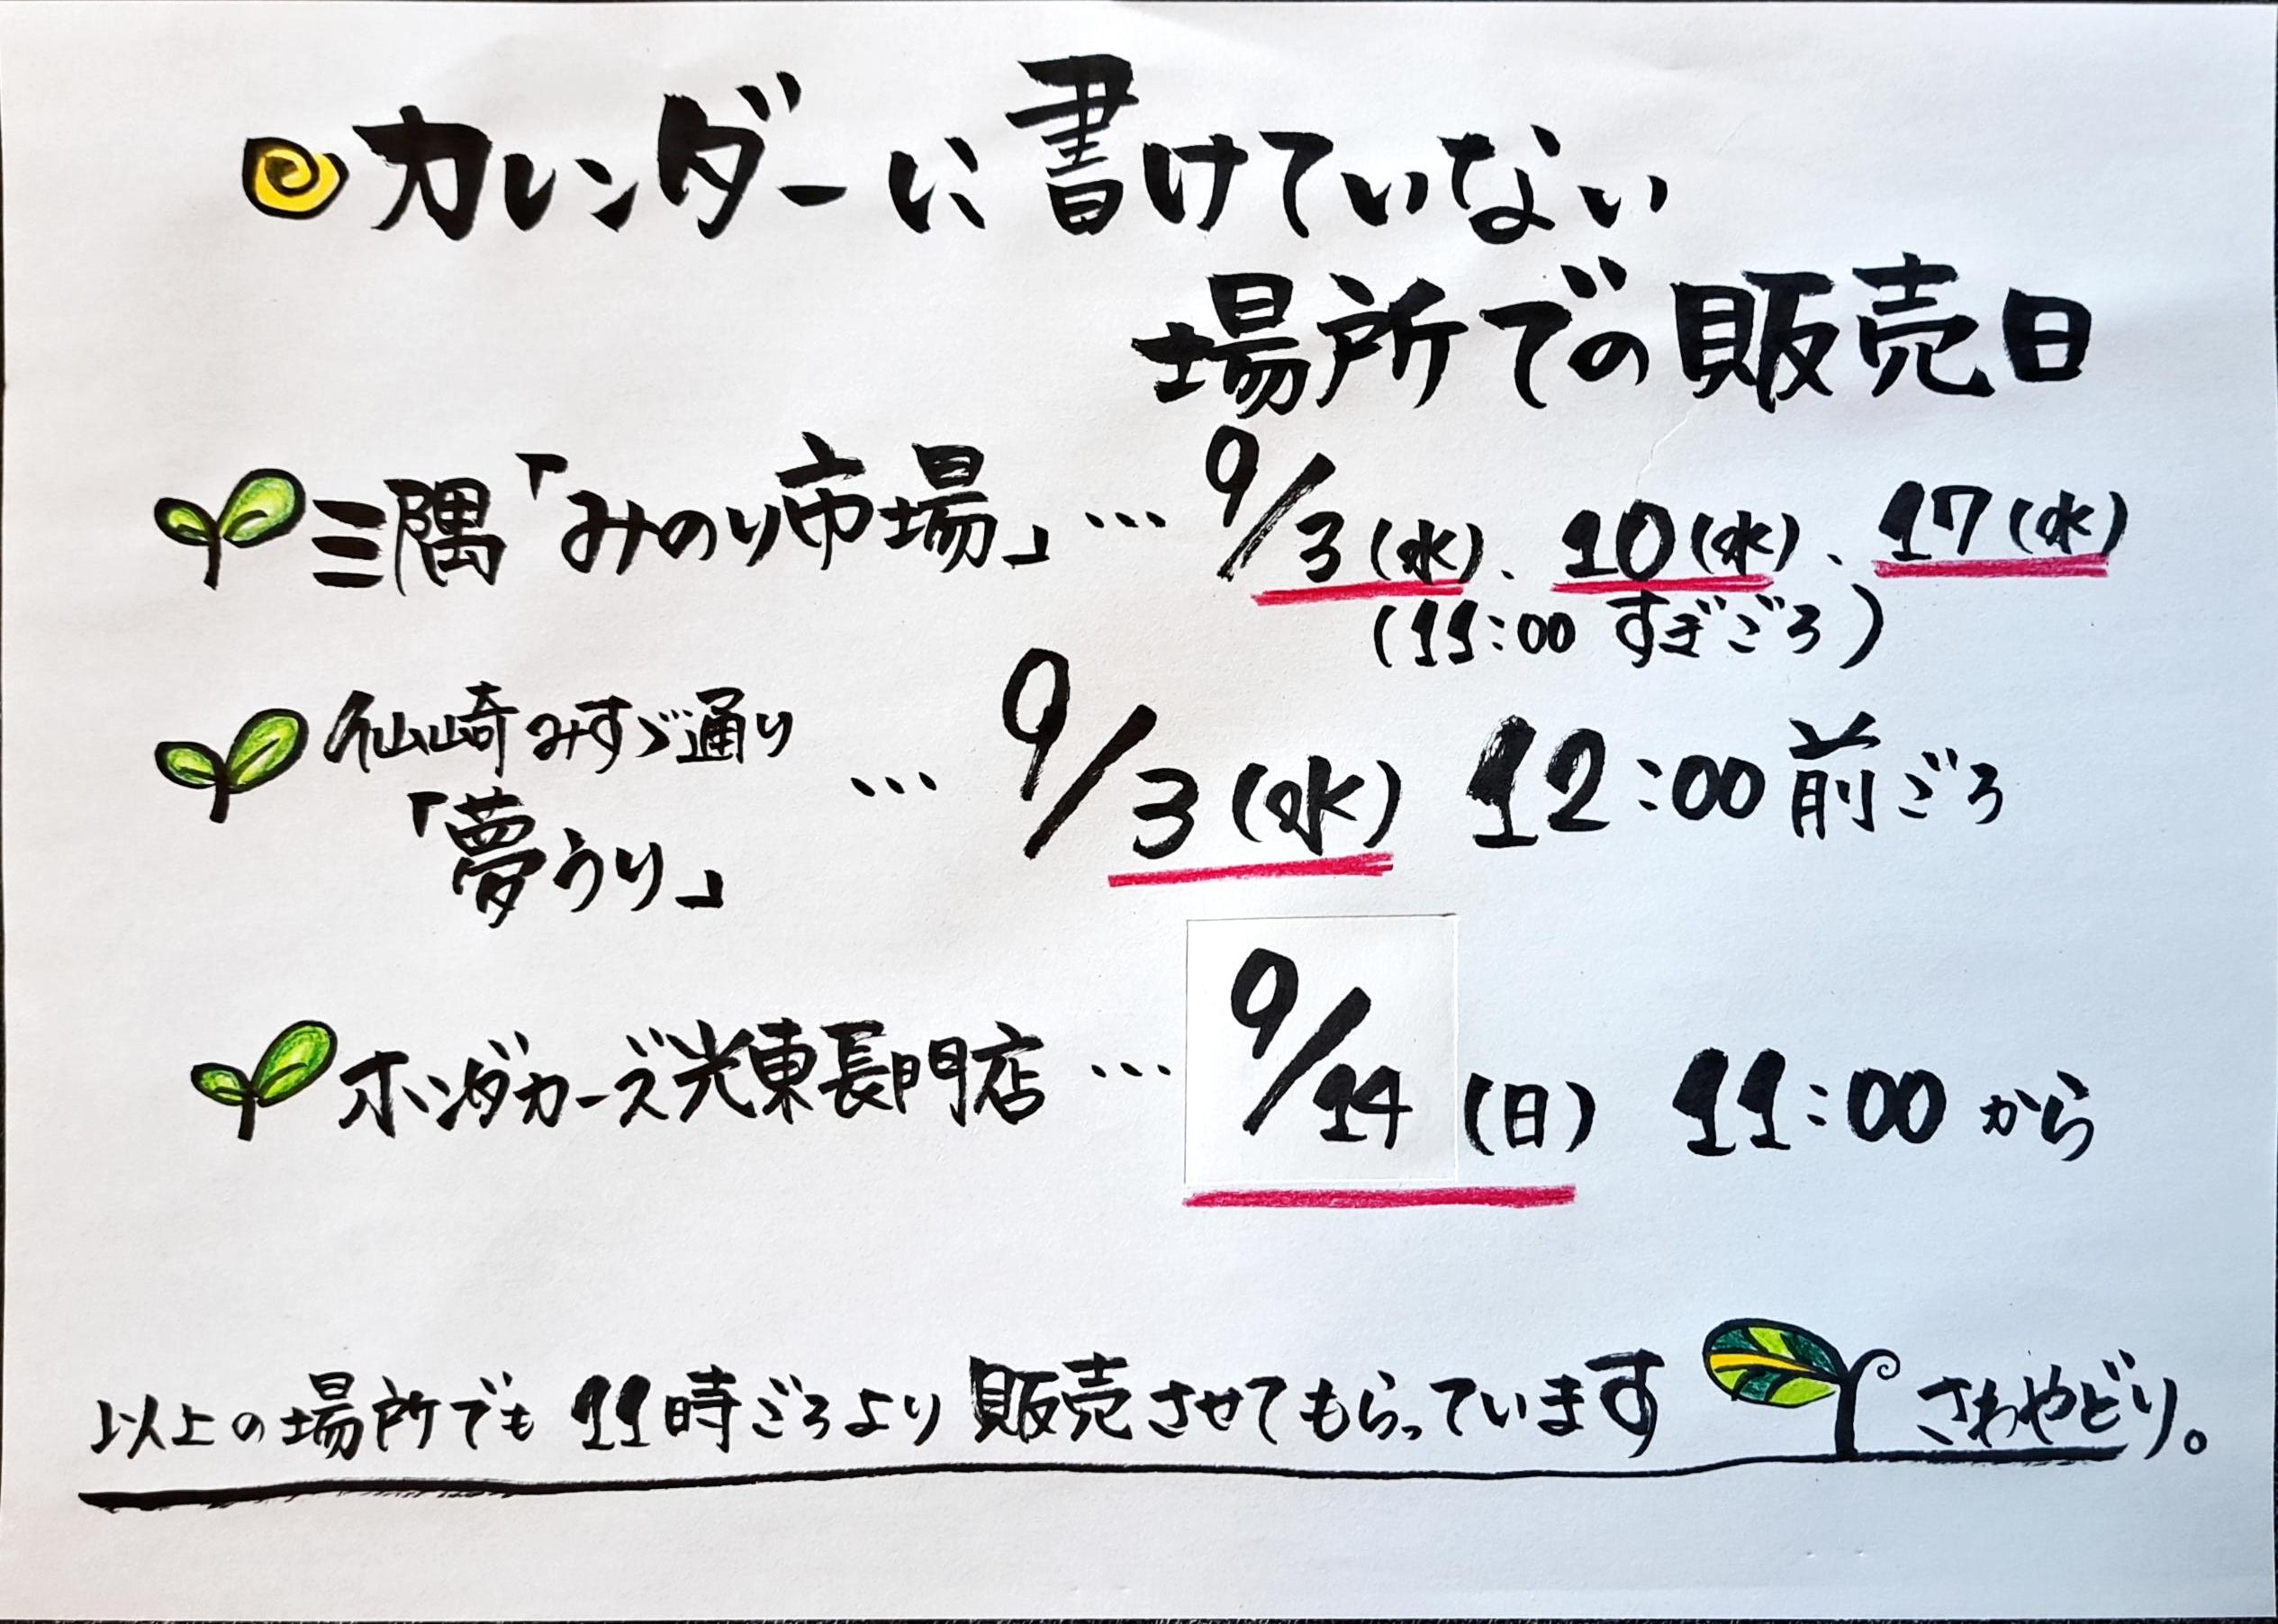 カレンダーに書けていない
場所での販売日
三隅「みのり市場」… 9/3(水)、10(水)、17(水)
(11:00 すぎごろ)
仙崎みすゞ通り
「夢うり」 … 9/3(水) 12:00前ごろ
ホンダカーズ光東長門店 … 9/14(日) 11:00から
以上の場所でも11時ごろより販売させてもらっています さわやどり。